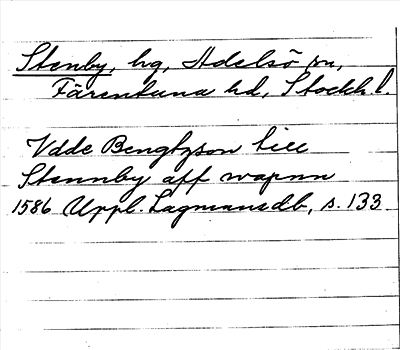 Stenby, hg, Adelsö sn,
Färentuna hd, Stockh l.
Vdde Bengtzson till
Stennby aff wapnn
1586 Uppl. Lagmansdb, s. 133